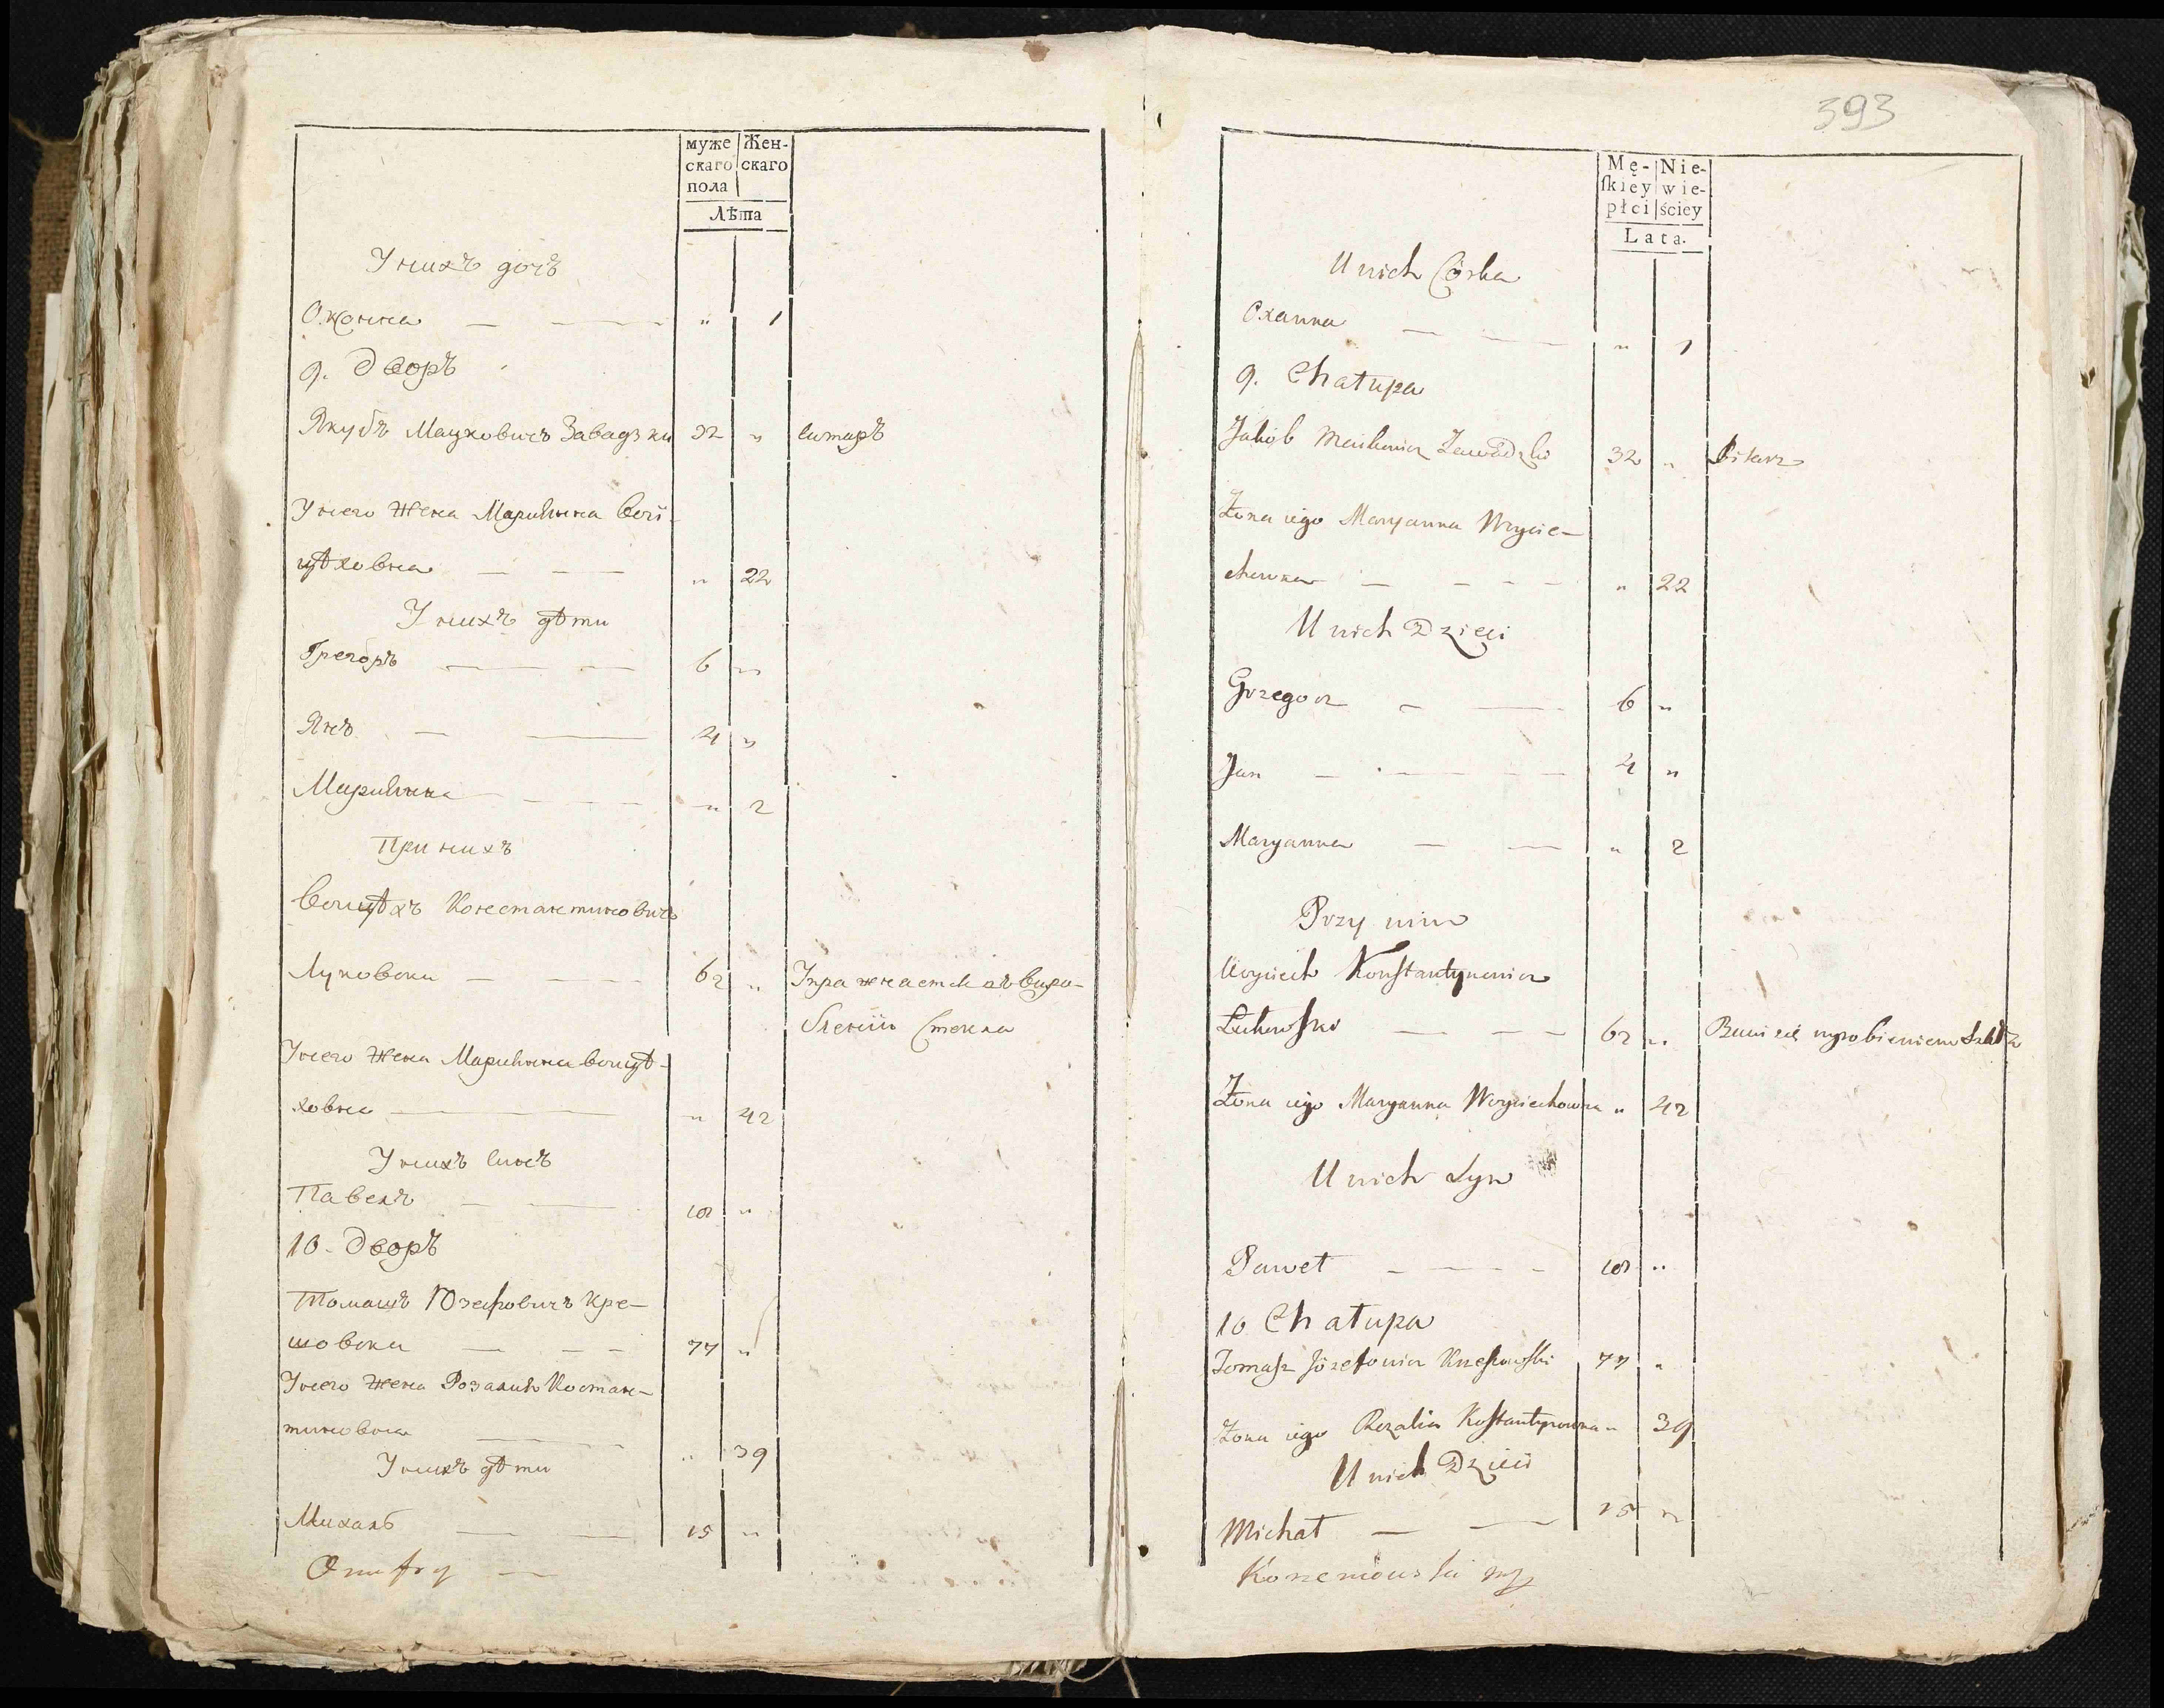 муже Жен-
скаго скаго
пола
Лѣта
У нихъ дочь
Оханна — — " 1
9. Дворъ
Якубъ Мацковичъ Завадзки 32 " ситаръ
У него жена Марианна Вои-
цѣховна — — — " 22
У нихъ дѣти
Грегоръ — — 6 "
Янъ — — 4 "
Марианна — — — " 2
При нихъ
Воицѣхъ Константиновичъ
Луковски — — 62 " Упражнается въ выра-
блении Стекла
У него жена Марианна Воицѣ-
ховна — — " 42
У нихъ сынъ
Павелъ — — 10 "
10. Дворъ
Томашъ Юзефовичъ Кре-
шовски — — — 77 "
У него жена Розалия Костан-
тиновна — — " 39
У нихъ дѣти
Михалъ — — 15 "
Onufry —
393
Mę- Nie-
ſkiey wie-
płci ściey
Lata.
U nich Córka
Oxanna — — " 1
9. Chałupa
Jakób Zawadzki 32 " Sitarz
Żona iego Maryanna Woycie-
chowna — — — — " 22
U nich Dzieci
Grzegorz — — 6 "
Jan — — — — 4 "
Maryanna — — " 2
Przy nim
Woyciech Konſtantynowicz
Łukowſki — — — 62 " Bawi się wyrobieniem Szkła
Żona iego Maryanna Woyciechowna " 42
U nich Syn
Paweł — — — — 10 "
10 Chałupa
Tomaſz Józefowicz Krzeſzowſki 77 "
Żona iego Rozalia Koſtantynowna " 39
U nich Dzieci
Michał — — 15 "
Korzeniowski mp